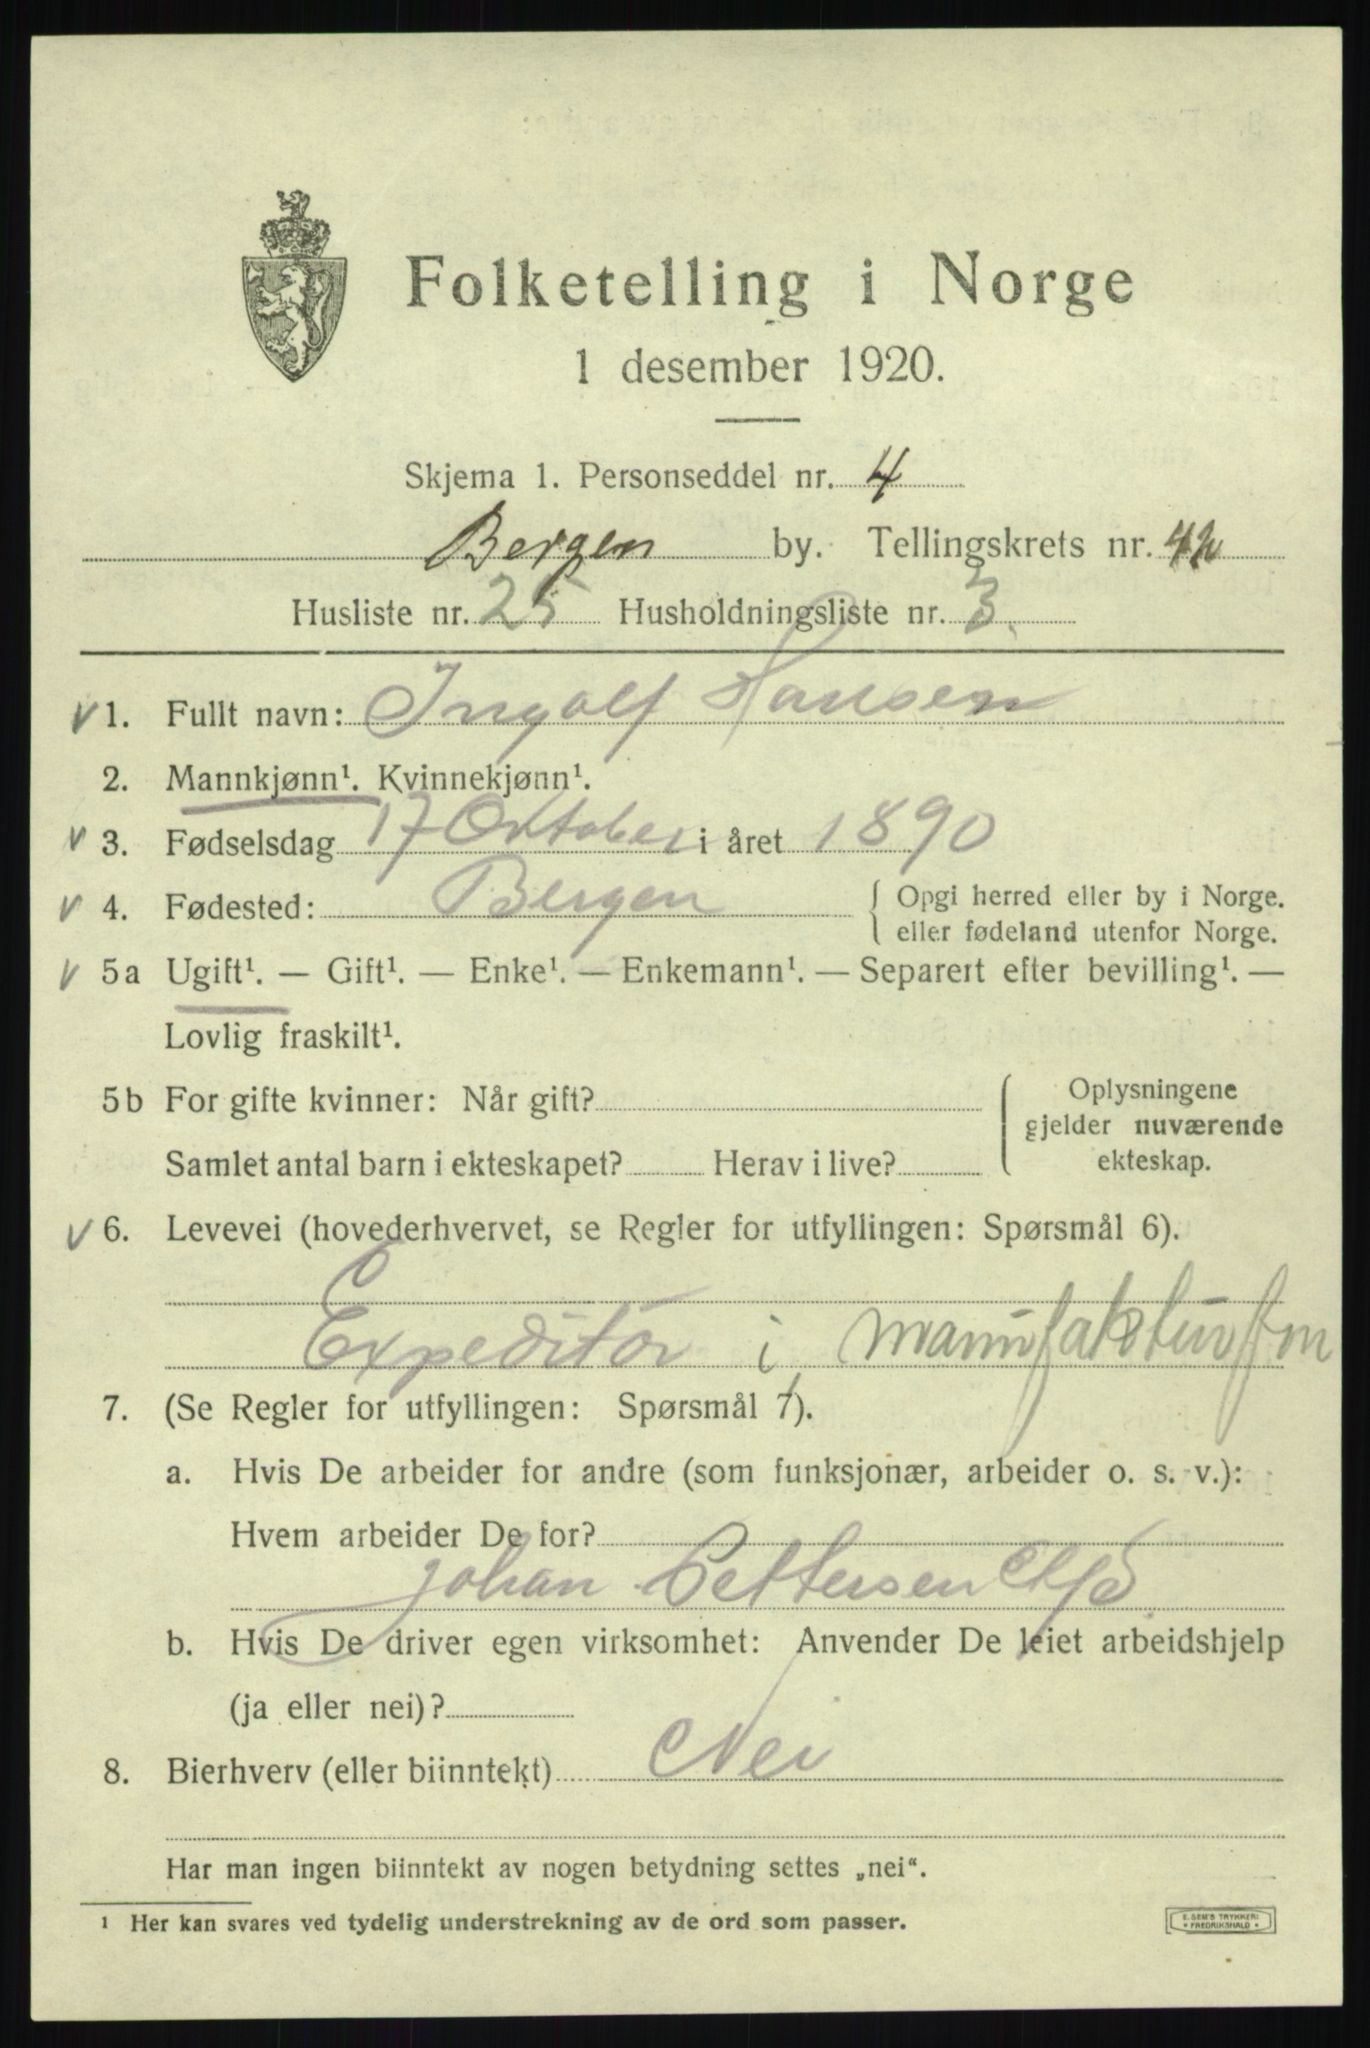 Folketelling i Norge
1 desember 1920.
Skjema 1. Personseddel nr. 4
Bergen by. Tellingskrets nr. 42
Husliste nr. 25 Husholdningsliste nr. 3.
v 1. Fullt navn: Ingolf Hansen
2. Mannkjønn¹. Kvinnekjønn¹.
v 3. Fødselsdag 17 Oktober i året 1890
v 4. Fødested: Bergen { Opgi herred eller by i Norge.
eller fødeland utenfor Norge.
v 5a Ugift¹. — Gift¹. — Enke¹. — Enkemann¹. — Separert efter bevilling¹. —
Lovlig fraskilt¹.
5b For gifte kvinner: Når gift? { Oplysningene
gjelder nuværende
Samlet antal barn i ekteskapet? Herav i live? ekteskap.
v 6. Levevei (hovederhvervet, se Regler for utfyllingen: Spørsmål 6).
Expeditør i manufakturftn
7. (Se Regler for utfyllingen: Spørsmål 7).
a. Hvis De arbeider for andre (som funksjonær, arbeider o. s. v.):
Hvem arbeider De for?
Johan Pettersen
b. Hvis De driver egen virksomhet: Anvender De leiet arbeidshjelp
(ja eller nei)?
8. Bierhverv (eller biinntekt) Nei
Har man ingen biinntekt av nogen betydning settes „nei“.
¹ Her kan svares ved tydelig understrekning av de ord som passer.
E. SEM'S TRYKKERI
• FREDRIKSHALD •